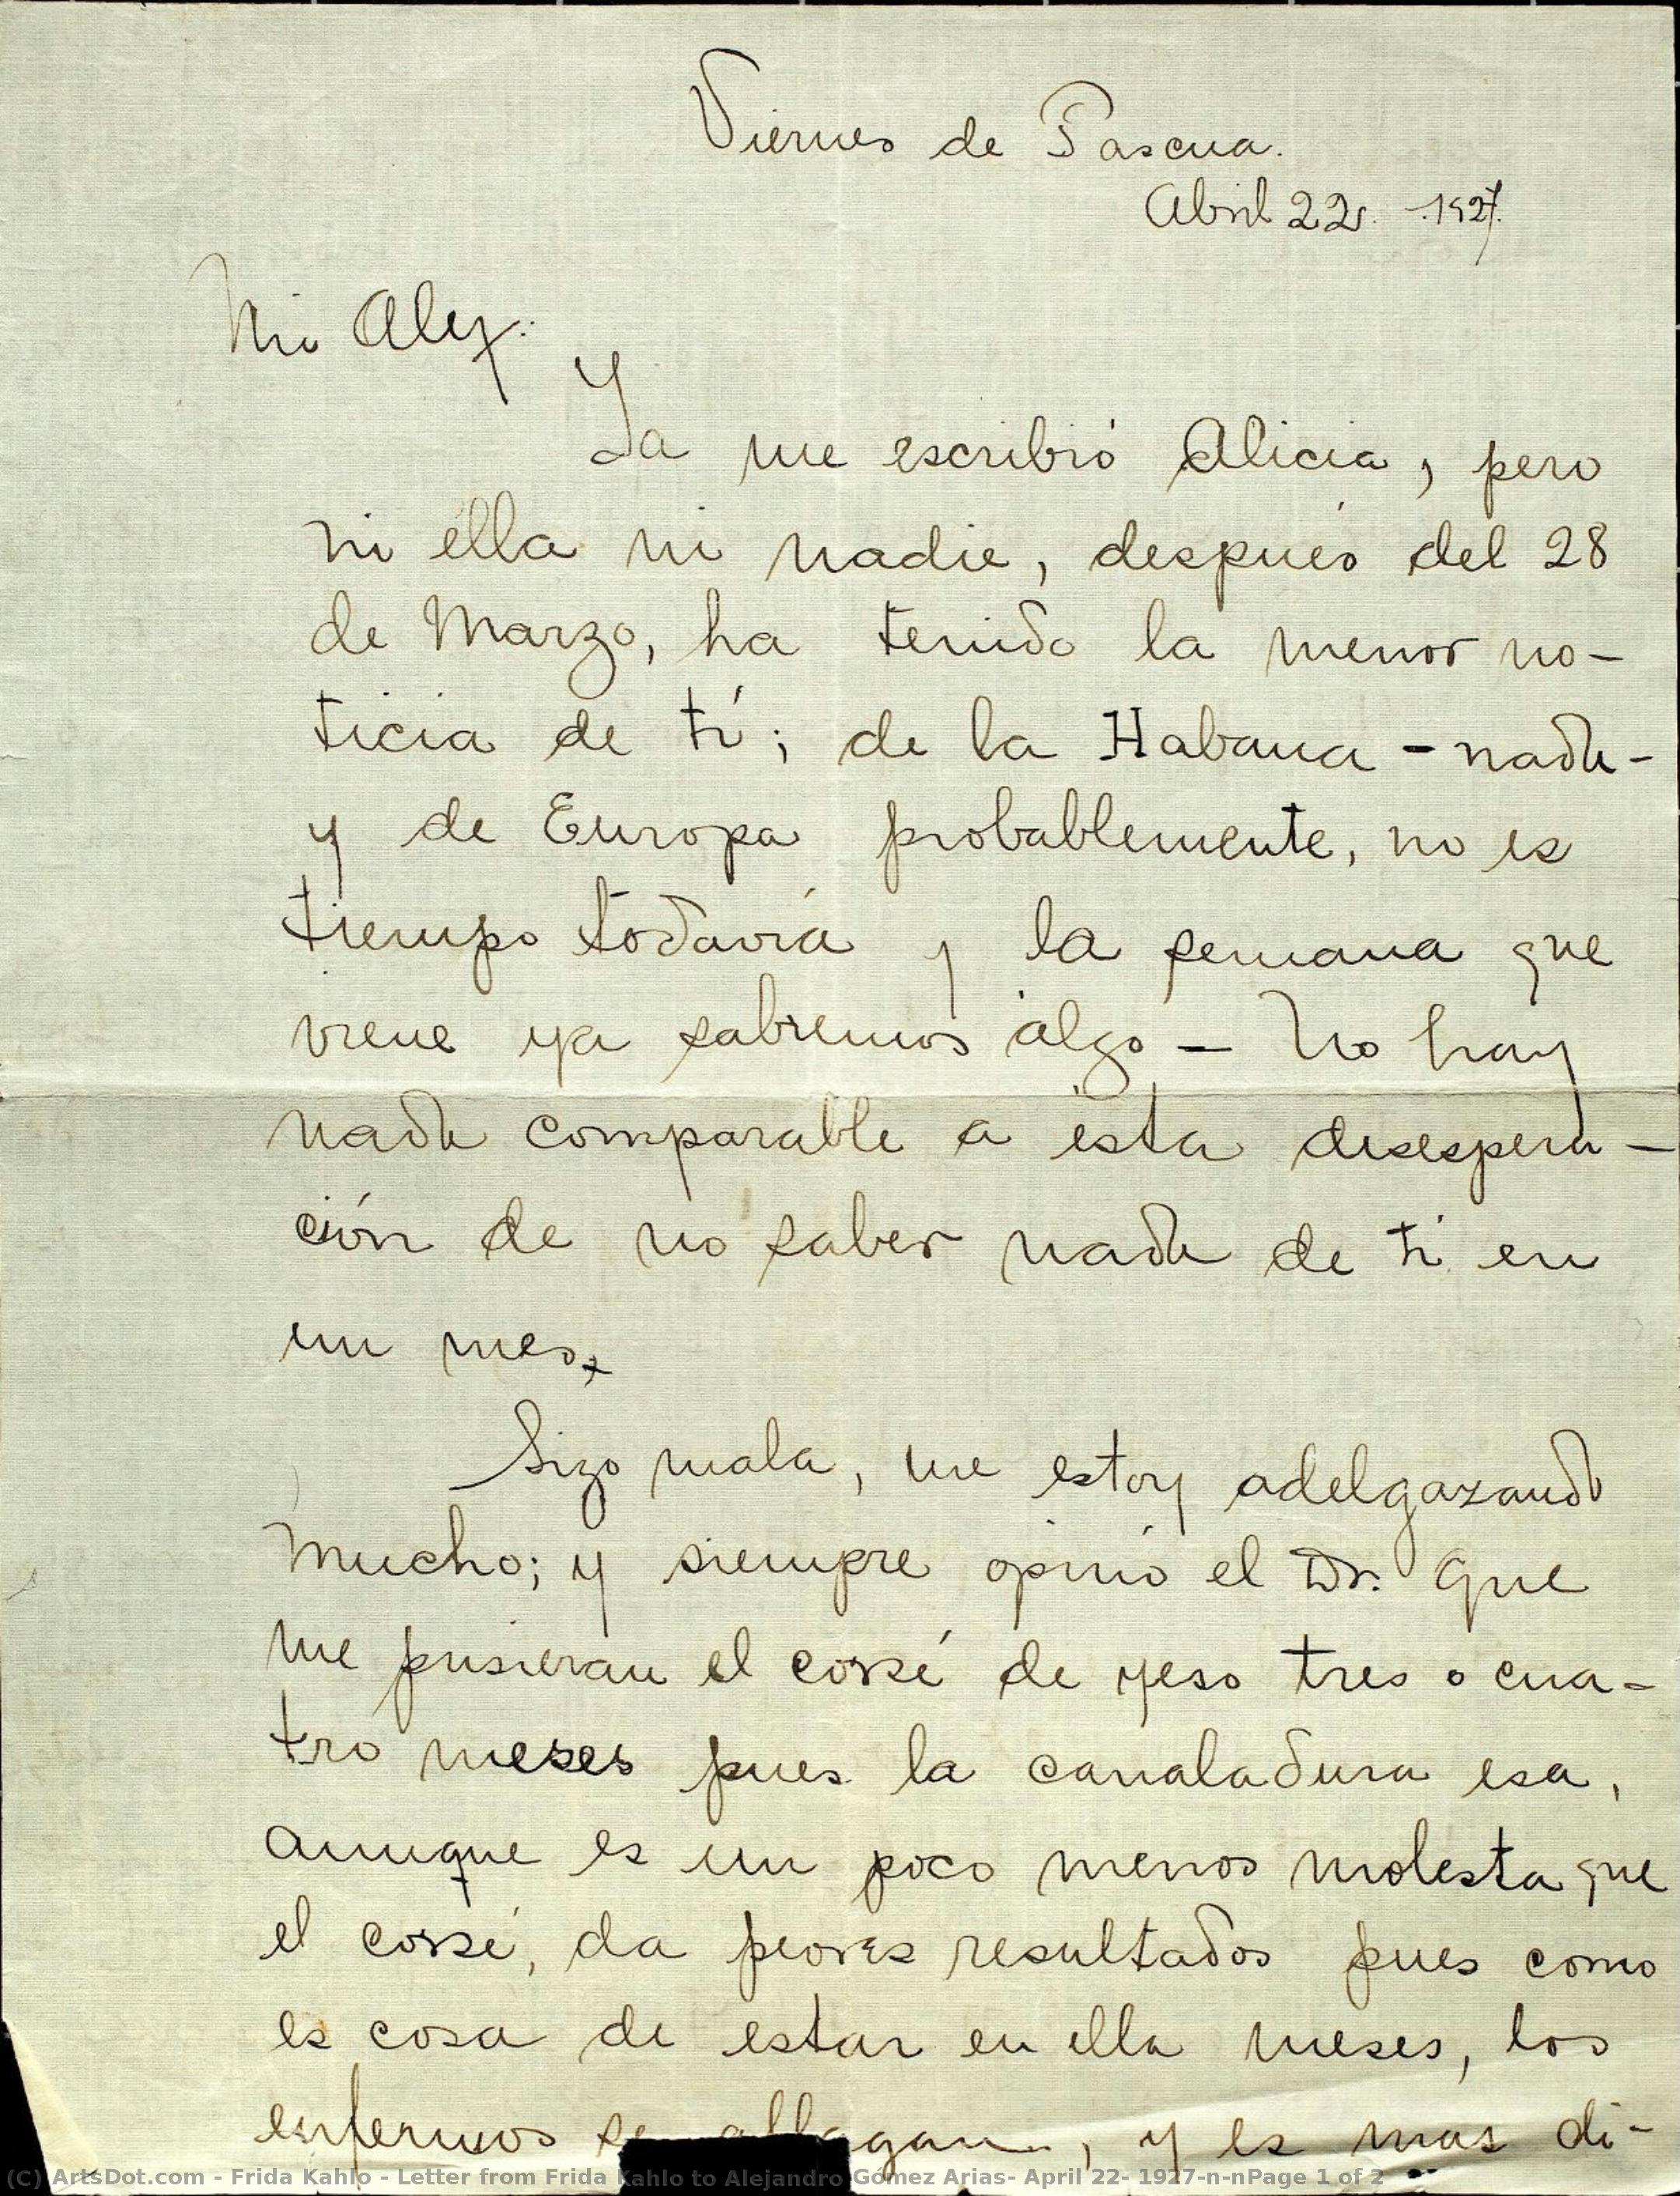 Viernes de Pascua.
Abril 22. - 1927.
Mi Alex:
Ya me escribió Alicia, pero
ni élla ni nadie, despues del 28
de Marzo, ha tenido la menor no-
ticia de tí; de la Habana - nada -
y de Europa probablemente, no es
tiempo todavía y la semana que
viene ya sabremos algo - No hay
nada comparable a ésta desespera-
ción de no saber nada de tí en
un mes.
Sigo mala, me estoy adelgazando
mucho; y siempre opinó el Dr. que
me pusieran el corsé de yeso tres o cua-
tro meses pues la canaladura esa,
aunque es un poco menos molesta que
el corsé, da peores resultados pues como
es cosa de estar en ella meses, los
enfermos se allagan, y es mas di-
(C) ArtsDot.com - Frida Kahlo - Letter from Frida Kahlo to Alejandro Gómez Arias- April 22- 1927-n-nPage 1 of 2